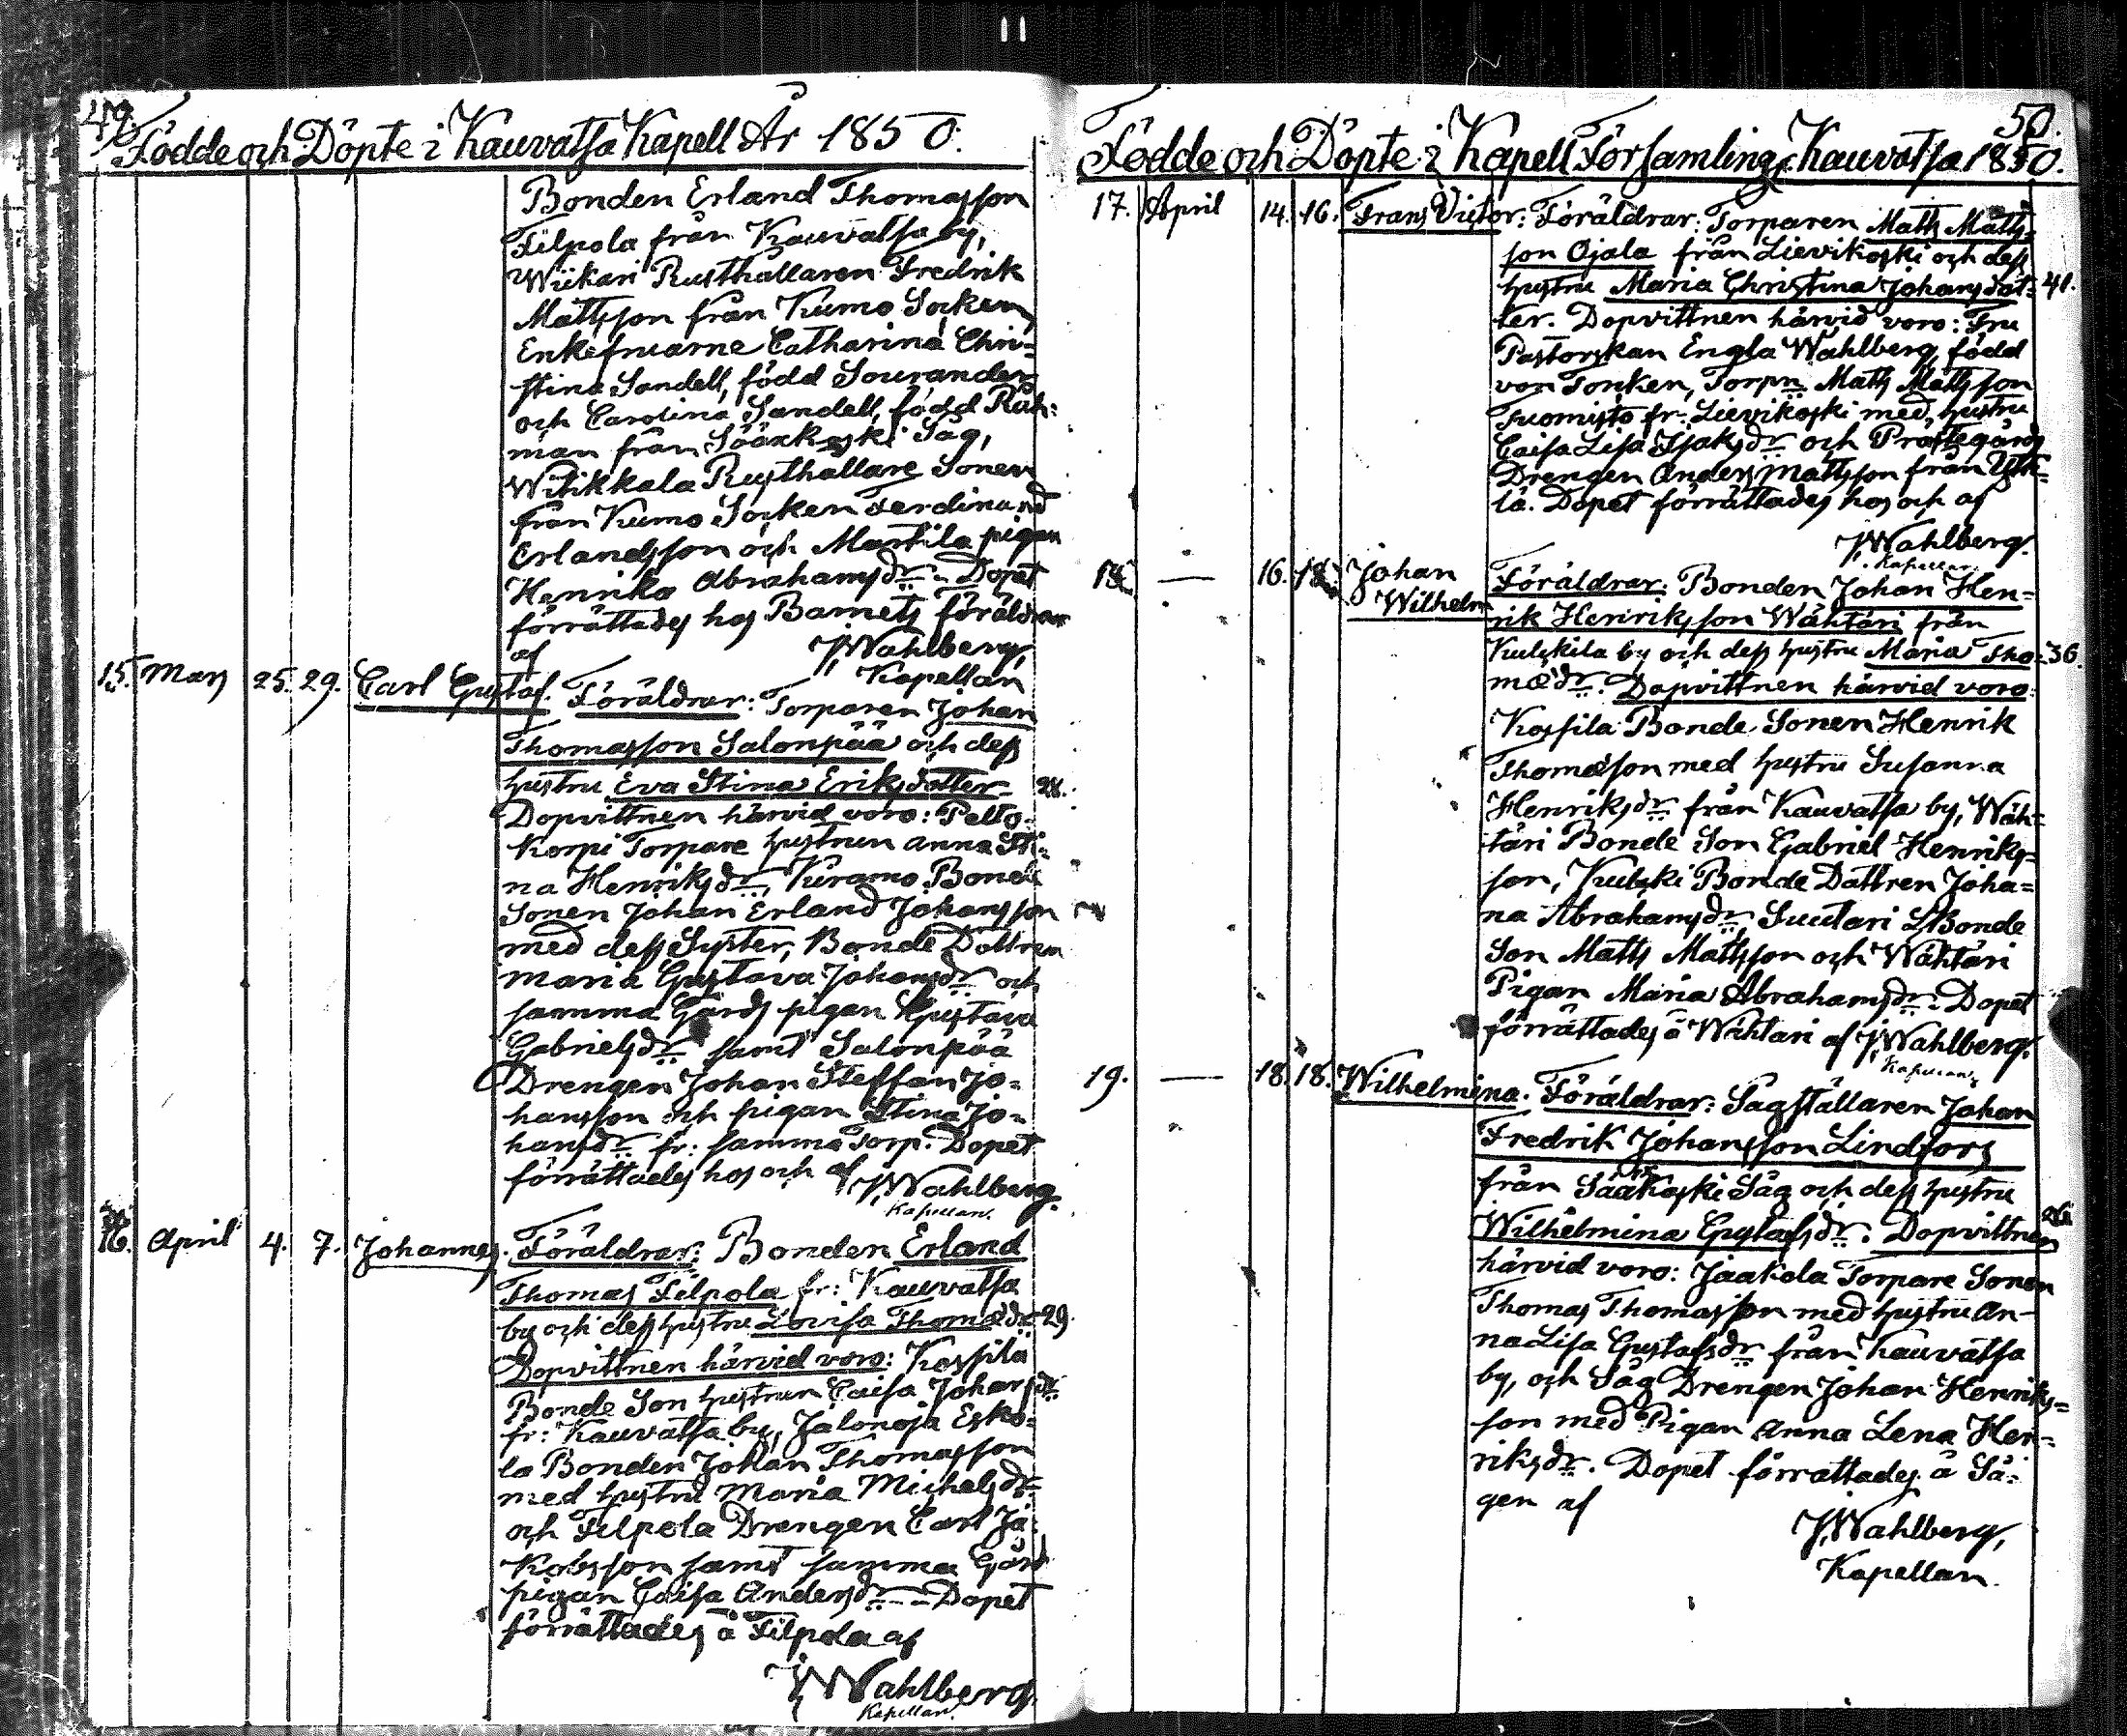 49.
Födde och Döpte i Kauvatsa Kapell År 1850.
Bonden Erland Thomasson
Filpola från Kauvatsa by,
Wiikari Rusthållaren Fredrik
Mattsson från Kumo Socken,
Enkefruarne Catharina Chri=
stina Sandell, född Sourander
och Carolina Sandell, född Råh=
man från Sääxkoski Såg,
Witikkala Rusthållare Sonen
från Kumo Socken Ferdinand
Erlandsson och Marttila pigan
Henrika Abrahamsdr. Dopet
förrättades hos Barnets föräldrar
af J. Wahlberg,
Kapellan
15. Mars 25. 29. Carl Gustaf. Föräldrar: Torparen Johan
Thomasson Salonpää och dess
hustru Eva Stina Eriksdotter. 28.
Dopvittnen härvid voro: Pelto=
korpi Torpare hustrun Anna Sti=
na Henriksdr, Kuramo Bonde
Sonen Johan Erland Johansson
med dess Syster, Bonde Dottren
Maria Gustava Johansdr och
samma Gårds pigan Gustava
Gabrielsdr samt Salonpää
Drengen Johan Steffan Jo=
hansson och pigan Stina Jo=
hansdr fr: samma Torp. Dopet
förrättades hos och af J. Wahlberg.
Kapellan.
16. April 4. 7. Johannes. Föräldrar: Bonden Erland
Thomas Filpola fr: Kauvatsa
by och dess hustru Lovisa Thomædr 29.
Dopvittnen härvid voro: Kossila
Bonde Son hustrun Caisa Johansdr
fr: Kauvatsa by, Jalonoja Esko=
la Bonden Johan Thomasson
med hustru Maria Michelsdr
och Filpola Drengen Carl Ja=
kobsson samt samma Gård
pigan Caisa Andersdr. Dopet
förrättades å Filpola af
J. Wahlberg.
Kapellan.
50.
Födde och Döpte i Kapell Församling Kauvatsa 1850.
17. April 14. 16. Frans Victor: Föräldrar: Torparen Matts Matts=
son Ojala från Lievikoski och dess
hustru Maria Christina Johansdot= 41.
ter. Dopvittnen härvid voro: Fru
Pastorskan Engla Wahlberg, född
von Tonken, Torpn Matts Mattsson
Tuomisto fr: Lievikoski med hustru
Caisa Lisa Isaksdr och Prästegårds
Drengen Anders Mattsson från Ytti=
lä. Dopet förrättades hos och af
J. Wahlberg.
Kapellan.
18. — 16. 18. Johan
Wilhelm
Föräldrar: Bonden Johan Hen=
rik Henriksson Wähtäri från
Kulskila by och dess hustru Maria Tho= 36.
mædr. Dopvittnen härvid voro:
Kossila Bonde Sonen Henrik
Thomæson med hustru Susanna
Henriksdr från Kauvatsa by, Wäh=
täri Bonde Son Gabriel Henriks=
son, Kulski Bonde Dottren Joha=
na Abrahamsdr, Suutari LBonde
Son Matts Mattsson och Wähtäri
Pigan Maria Abrahamsdr. Dopet
förrättades å Wähtäri af J. Wahlberg.
Kapellan.
19. — 18. 18. Wilhelmina. Föräldrar: Sågställaren Johan
Fredrik Johansson Lindfors
från Sääxkoski Såg och dess hustru
Wilhelmina Gustafsdr. Dopvittnen 26.
härvid voro: Jaakola Torpare Sonen
Thomas Thomasson med hustru An=
na Lisa Gustafsdr från Kauvatsa
by, och Såg Drengen Johan Henriks=
son med Pigan Anna Lena Hen=
riksdr. Dopet förrättades å Så=
gen af
J. Wahlberg,
Kapellan.